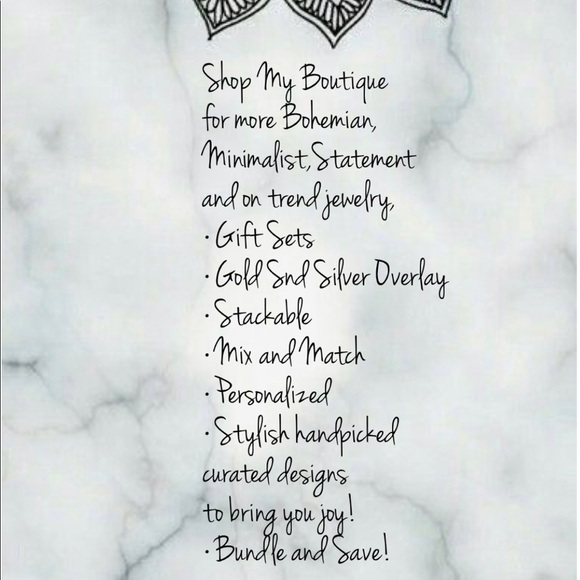 Shop My Boutique
for more Bohemian,
Minimalist, Statement
and on trend jewelry,
· Gift Sets
· Gold Snd Silver Overlay
· Stackable
· Mix and Match
· Personalized
· Stylish handpicked
curated designs
to bring you joy!
· Bundle and Save!